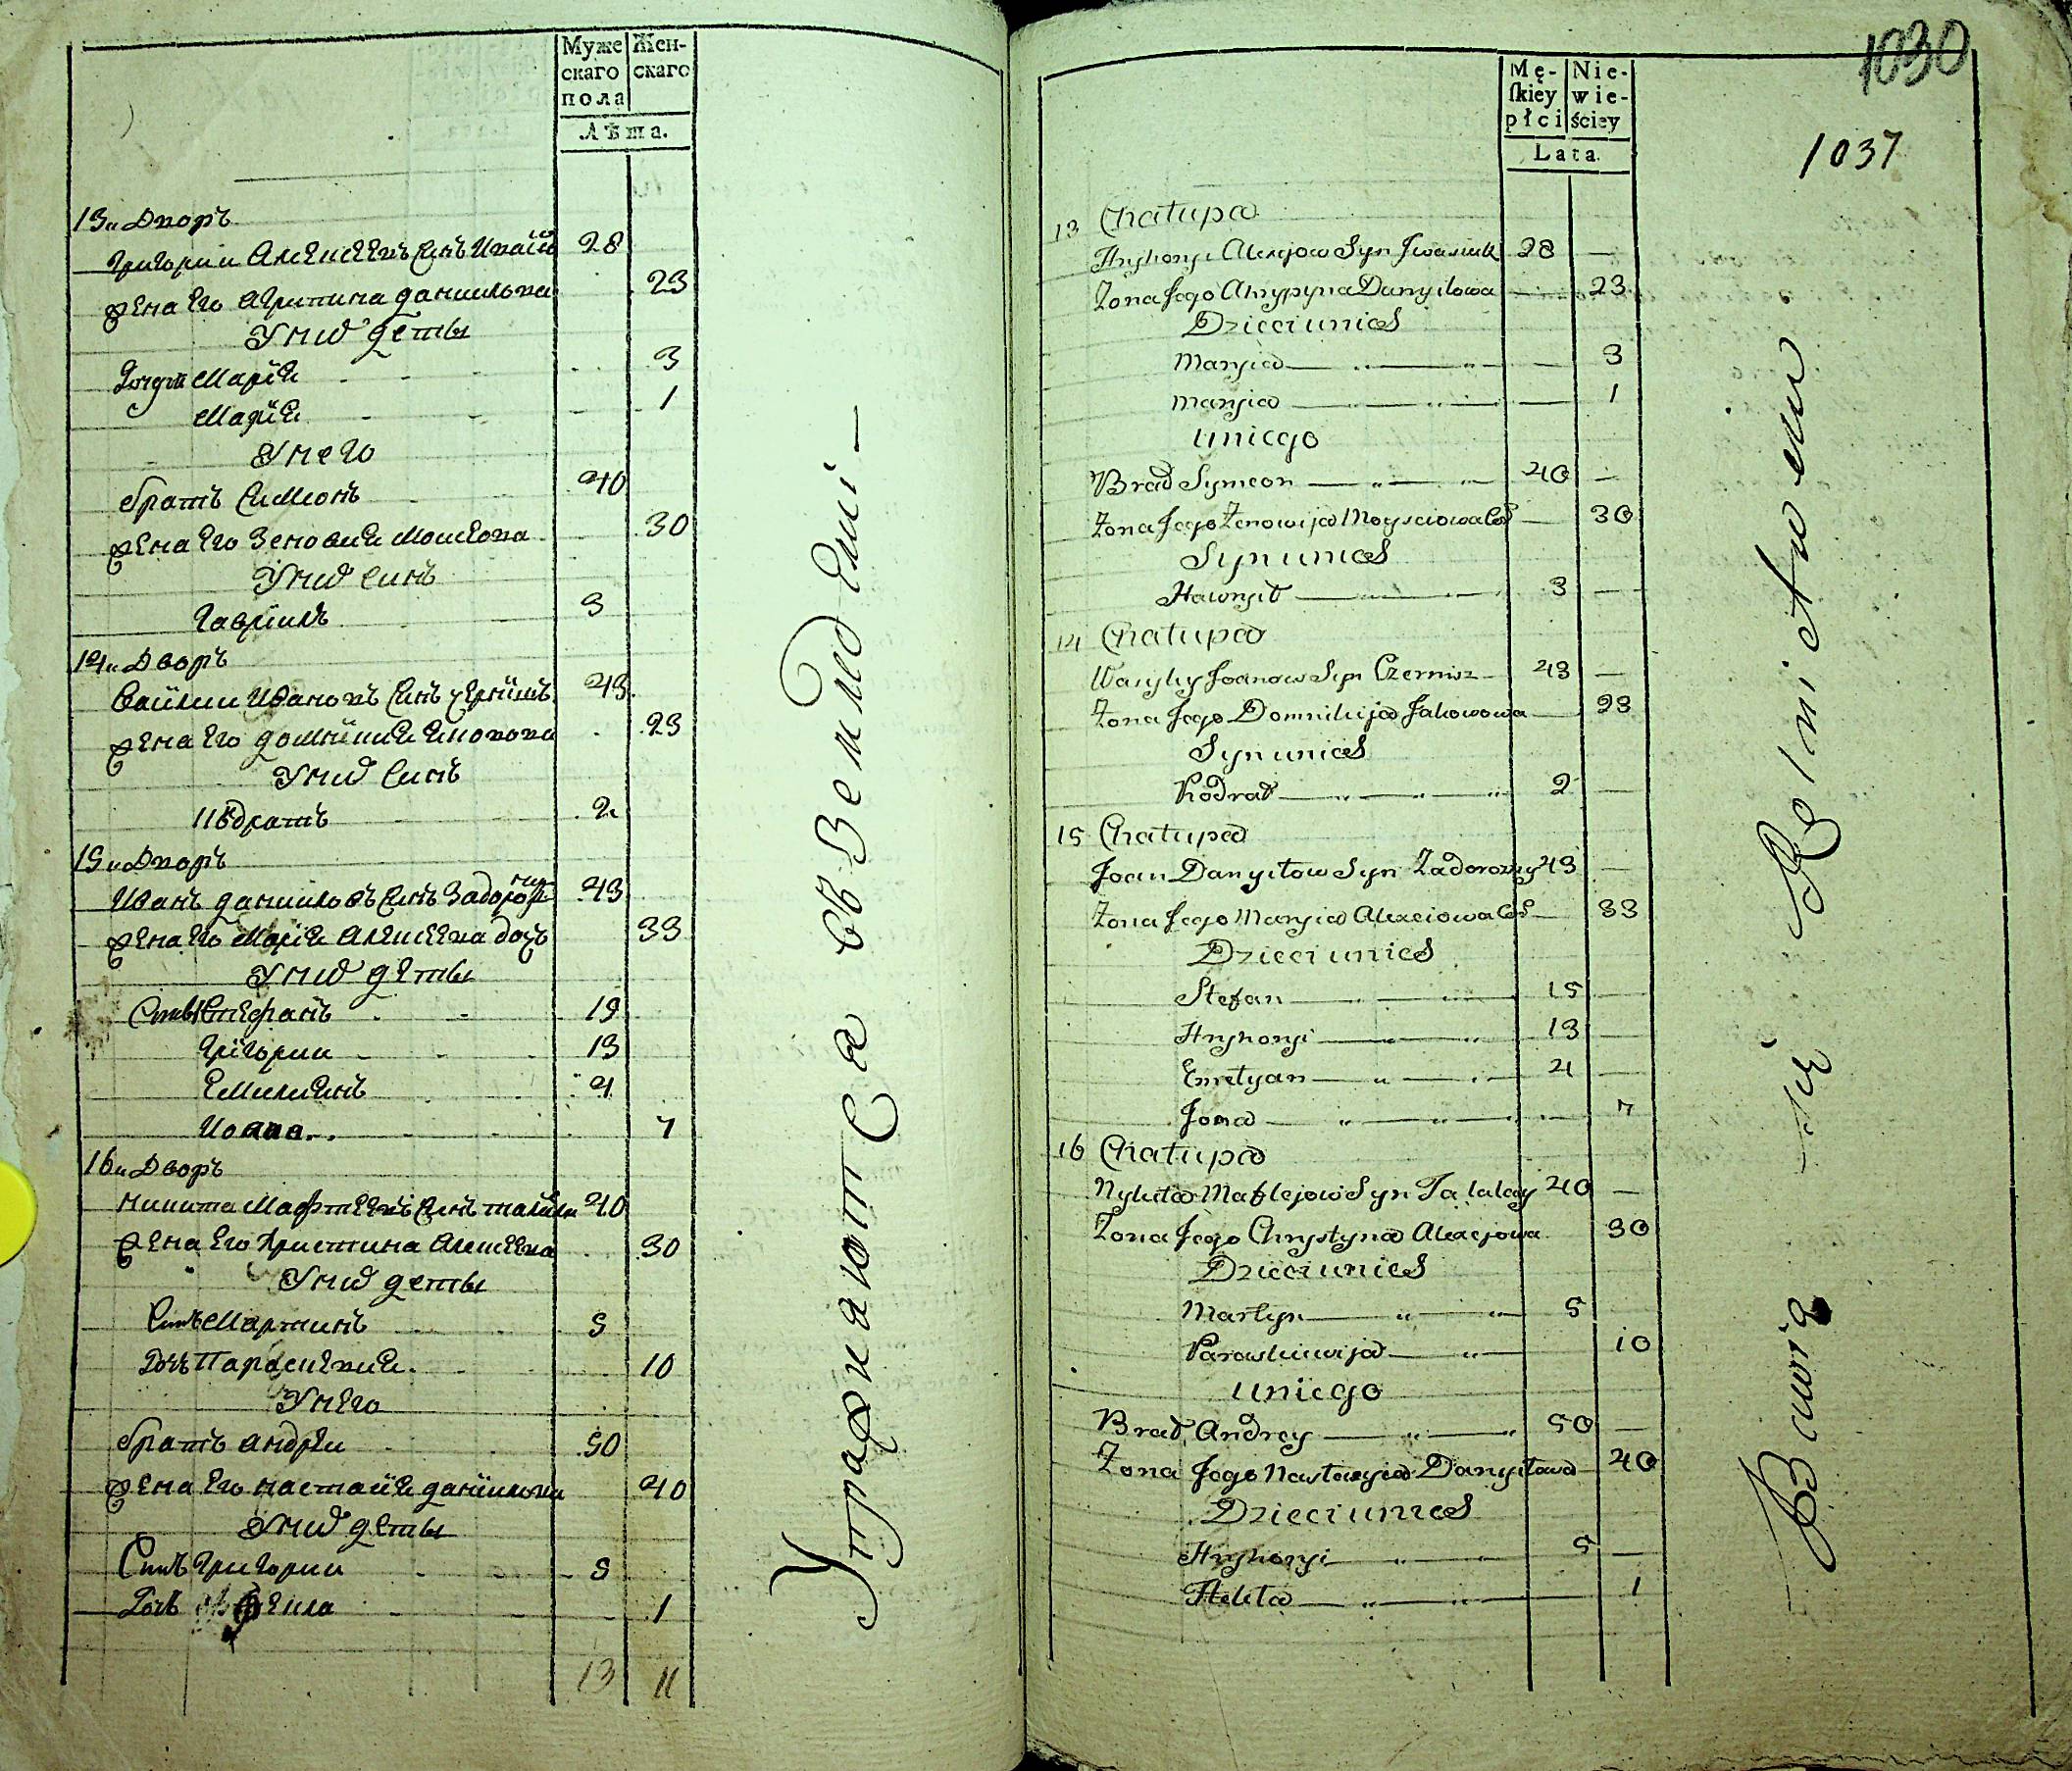 Муже Жен-
скаго скаго
пола
Лѣта.
13й Дворъ
Григорий Алексеевъ синъ Иваси 28
жена его Агрипина Даниилова 23
У нид дети
Дочери Мария 3
Мария 1
У него
братъ Симонъ 40
жена его Зеновия Моисеова 30
У нид синъ
Гавриилъ 3
14й Дворъ
Василии Ивановъ синъ Чернишъ 43
жена его Домникия Яковова 23
У нид синъ
Кодратъ 2
15й Дворъ
Иванъ Данииловъ синъ Задорожни 43
жена его Мария Алексеева дочъ 33
У нид дети
Синъ Стефанъ 15
Григории 13
Емилиянъ 4
Иоана 7
16й Дворъ
Никита Мафтеевъ синъ Талалаи 40
жена его Христина Алексеева 30
У нид дети
Синъ Мартинъ 5
Дочъ Параскевия 10
У него
братъ Андреи 50
жена его Настасия Даниилова 40
У нид дети
Синъ Григории 5
Дочъ Фекла 1
13 11
Упражняются въ Земледелии
1030
1037
Mę- Nie-
ſkiey wie-
płci ściey
Lata.
13 Chałupa
Hryhoryi Alexejow Syn Jwasiuk 28 —
Żona Jego Ahrypyna Danyiłowa — 23
Dzieci u nieŏ
Maryia — 3
Maryia — 1
u niego
Brad Symeon 40 —
Żona Jego Zenowija Moysciowa Cŏ — 30
Syn u nieŏ
Hawryił 3 —
14 Chałupa
Wasyly Joanow Syn Czernisz 43 —
Żona Jego Domnikija Jakowowa — 23
Syn u nieŏ
Kodrat 2 —
15 Chałupa
Joan Danyiłow Syn Zadorozny 43 —
Żona Jego Maryia Alexeiowa Cŏ — 33
Dzieci u nieŏ
Stefan 15 —
Hryhoryi 13 —
Emelyan 4 —
Joana — 7
16 Chałupa
Nykita Maftejow Syn Talalay 40 —
Żona Jego Chrystyna Alexejowa 30
Dzieci u nieŏ
Martyn 5
Paraskiewija 10
u niego
Brad Andrey 50 —
Żona Jego Nastasyia Danyiłowa — 40
Dzieci u nieŏ
Hryhoryi 5 —
Tekla — 1
Bawią się Rolnictwem